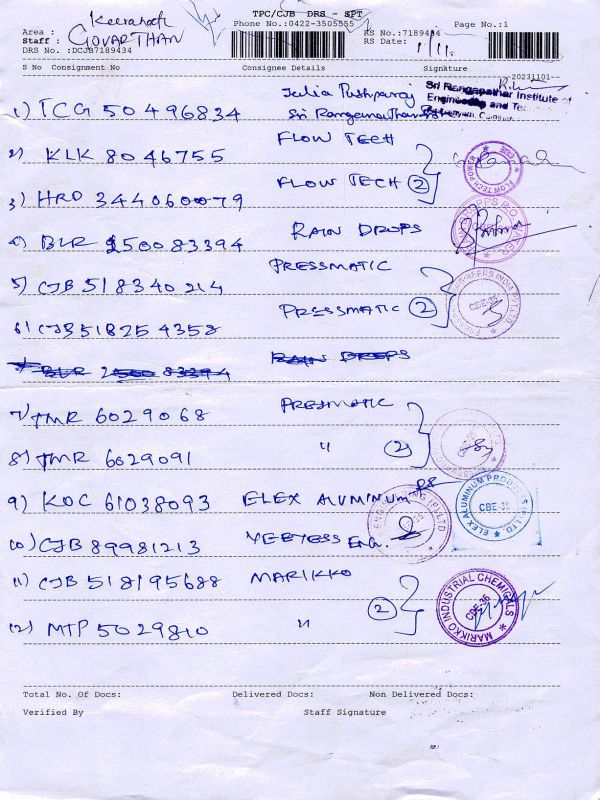 TPC/CJB DRS - SPT
Keeranath
Phone No.:0422-3505555
Page No.:1
Area :
RS No.:7189434
Staff : GOVARTHAN
RS Date: 1/11.
DRS No. :DCJB7189434
S No Consignment No Consignee Details Signature
-20231101--
1) TCG 504 96834 Julia Pushparaj
Sri Ranganathar Institute of
Engineering and
2) KLK 8046755 FLOW TECH
FLOW TECH 2
FLOW TECH POWER
3) HRO 344060079
4) BLR 2500 83394 RAIN DROPS
5) CJB 518340214 PRESSMATIC
PRESSMATIC 2
CBE-35
6) CJB518254358
BLR 2500 83394 RAIN DROPS
7) TMR 6029068 PRESMATIC
8) TMR 6029091 " 2
9) KOC 61038093 ELEX ALUMINUM
ELEX ALUMINUM PRODUCTS (P) LTD
CBE-35
10) CJB 89981213 Eng.
ENGINEERING (P) LTD
11) CJB 518195688 MARIKKO
2
MARIKKO INDUSTRIAL CHEMICALS
CBE-35
12) MTP 5029810 "
Total No. Of Docs: Delivered Docs: Non Delivered Docs:
Verified By Staff Signature